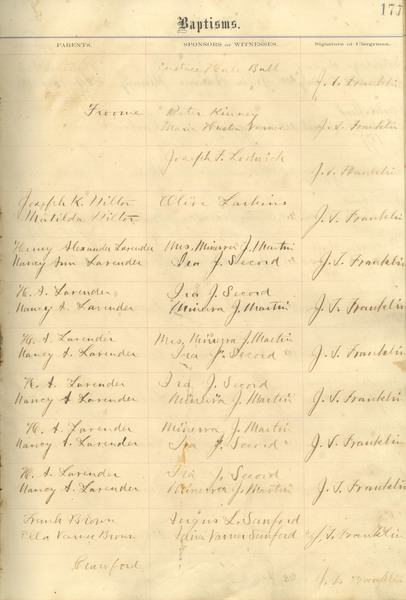 177
Baptisms.
PARENTS. SPONSORS or WITNESSES. Signature of Clergyman.
Hale Ball
J. S. Franklin
Froome Peter Kinney
Marie Hester J. S. Franklin
Joseph T. Lodwick
J. S. Franklin
Joseph K. Hilton Olive Larkins
Matilda Hilton J. S. Franklin
Henry Alexander Lavender Mrs. Minerva J. Martin
Nancy Ann Lavender Ira J. Secord J. S. Franklin
H. A. Lavender Ira J. Secord
Nancy A. Lavender Minerva J. Martin J. S. Franklin
H. A. Lavender Mrs. Minerva J. Martin
Nancy A. Lavender Ira J. Secord J. S. Franklin
H. A. Lavender Ira J. Secord
Nancy A. Lavender Minerva J. Martin J. S. Franklin
H. A. Lavender Minerva J. Martin
Nancy A. Lavender Ira J. Secord J. S. Franklin
H. A. Lavender Ira J. Secord
Nancy A. Lavender Minerva J. Martin J. S. Franklin
Frank Brown Fergus L. Sanford
Ella Varner Brown Varner Sanford J. S. Franklin
Crawford
J. S. Franklin